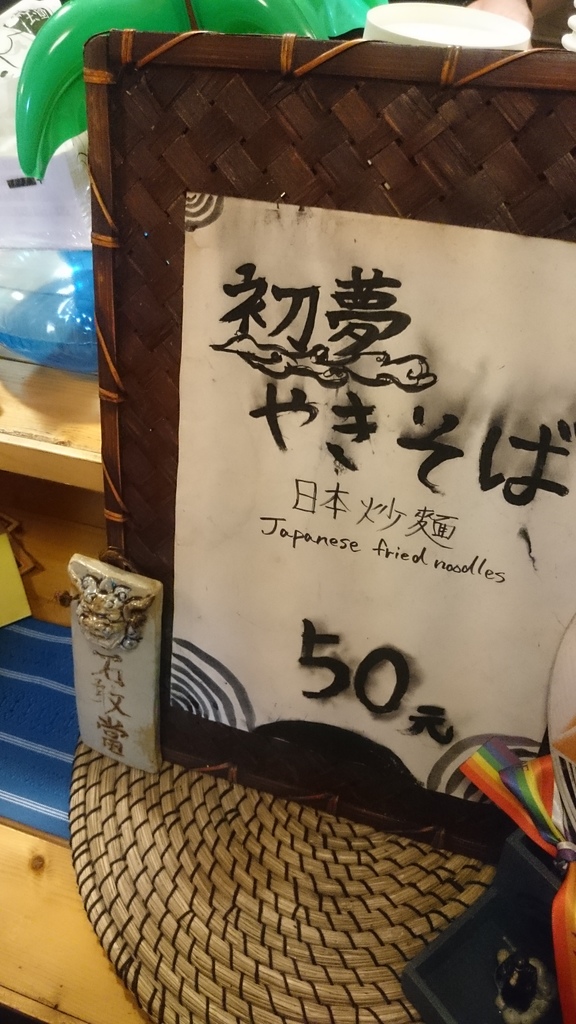 初夢
やきそば
日本炒麵
Japanese fried noodles
50元
石敢當